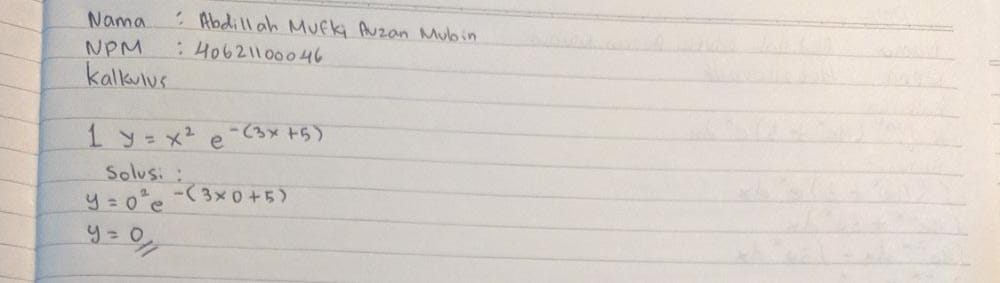 Nama : Abdillah Mufki Auzan Mubin
NPM : 40621100046
Kalkulus
1 y = x² e^-(3x+5)
Solusi :
y = 0² e^-(3×0+5)
y = 0